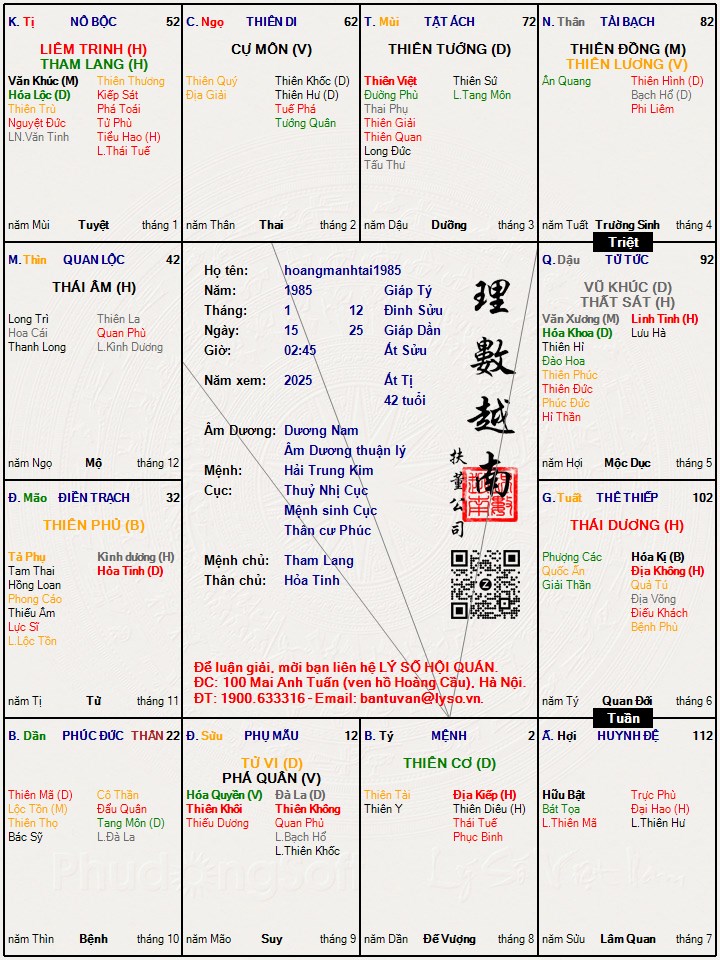 K. Tị NÔ BỘC 52
LIÊM TRINH (H)
THAM LANG (H)
Văn Khúc (M) Thiên Thương
Hóa Lộc (D) Kiếp Sát
Thiên Trù Phá Toái
Nguyệt Đức Tử Phù
LN.Văn Tinh Tiểu Hao (H)
L.Thái Tuế
năm Mùi Tuyệt tháng 1
C. Ngọ THIÊN DI 62
CỰ MÔN (V)
Thiên Quý Thiên Khốc (D)
Địa Giải Thiên Hư (D)
Tuế Phá
Tướng Quân
năm Thân Thai tháng 2
T. Mùi TẬT ÁCH 72
THIÊN TƯỚNG (D)
Thiên Việt Thiên Sứ
Đường Phù L.Tang Môn
Thai Phụ
Thiên Giải
Thiên Quan
Long Đức
Tấu Thư
năm Dậu Dưỡng tháng 3
N. Thân TÀI BẠCH 82
THIÊN ĐỒNG (M)
THIÊN LƯƠNG (V)
Ân Quang Thiên Hình (D)
Bạch Hổ (D)
Phi Liêm
năm Tuất Trường Sinh tháng 4
Triệt
M. Thìn QUAN LỘC 42
THÁI ÂM (H)
Long Trì Thiên La
Hoa Cái Quan Phù
Thanh Long L.Kình Dương
năm Ngọ Mộ tháng 12
Họ tên: hoangmanhtai1985
Năm: 1985 Giáp Tý
Tháng: 1 12 Đinh Sửu
Ngày: 15 25 Giáp Dần
Giờ: 02:45 Ất Sửu
Năm xem: 2025 Ất Tị
42 tuổi
Âm Dương: Dương Nam
Âm Dương thuận lý
Mệnh: Hải Trung Kim
Cục: Thuỷ Nhị Cục
Mệnh sinh Cục
Thân cư Phúc
Mệnh chủ: Tham Lang
Thân chủ: Hỏa Tinh
理數越南
扶董公司
Để luận giải, mời bạn liên hệ LÝ SỐ HỘI QUÁN.
ĐC: 100 Mai Anh Tuấn (ven hồ Hoàng Cầu), Hà Nội.
ĐT: 1900.633316 - Email: bantuvan@lyso.vn.
Q. Dậu TỬ TỨC 92
VŨ KHÚC (D)
THẤT SÁT (H)
Văn Xương (M) Linh Tinh (H)
Hóa Khoa (D) Lưu Hà
Thiên Hỉ
Đào Hoa
Thiên Phúc
Thiên Đức
Phúc Đức
Hỉ Thần
năm Hợi Mộc Dục tháng 5
Đ. Mão ĐIỀN TRẠCH 32
THIÊN PHỦ (B)
Tả Phụ Kình dương (H)
Tam Thai Hỏa Tinh (D)
Hồng Loan
Phong Cáo
Thiếu Âm
Lực Sĩ
L.Lộc Tồn
năm Tị Tử tháng 11
G. Tuất THÊ THIẾP 102
THÁI DƯƠNG (H)
Phượng Các Hóa Kị (B)
Quốc Ấn Địa Không (H)
Giải Thần Quả Tú
Địa Võng
Điếu Khách
Bệnh Phù
năm Tý Quan Đới tháng 6
Tuần
B. Dần PHÚC ĐỨC THÂN 22
Thiên Mã (D) Cô Thần
Lộc Tồn (M) Đẩu Quân
Thiên Thọ Tang Môn (D)
Bác Sỹ L.Đà La
năm Thìn Bệnh tháng 10
Đ. Sửu PHỤ MẪU 12
TỬ VI (D)
PHÁ QUÂN (V)
Hóa Quyền (V) Đà La (D)
Thiên Khôi Thiên Không
Thiếu Dương Quan Phủ
L.Bạch Hổ
L.Thiên Khốc
năm Mão Suy tháng 9
B. Tý MỆNH 2
THIÊN CƠ (D)
Thiên Tài Địa Kiếp (H)
Thiên Y Thiên Diêu (H)
Thái Tuế
Phục Binh
năm Dần Đế Vượng tháng 8
Ấ. Hợi HUYNH ĐỆ 112
Hữu Bật Trực Phù
Bát Tọa Đại Hao (H)
L.Thiên Mã L.Thiên Hư
năm Sửu Lâm Quan tháng 7
PhuđổngSoft
Lý Số Việt Nam